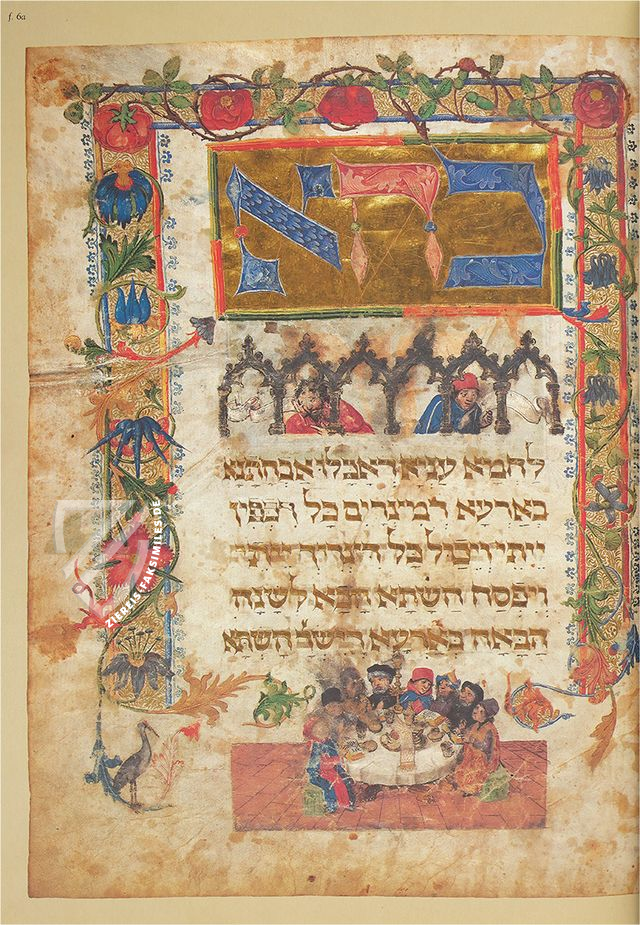 f. 6a
כהא
לחמא עניא דאכלו אבהתנא
בארעא דמצרים כל דכפין
ייתי ויכול כל דצריך ייתי
ויפסח השתא הכא לשנה
הבאה בארעא השתא
ZIEREIS-FAKSIMILES.DE